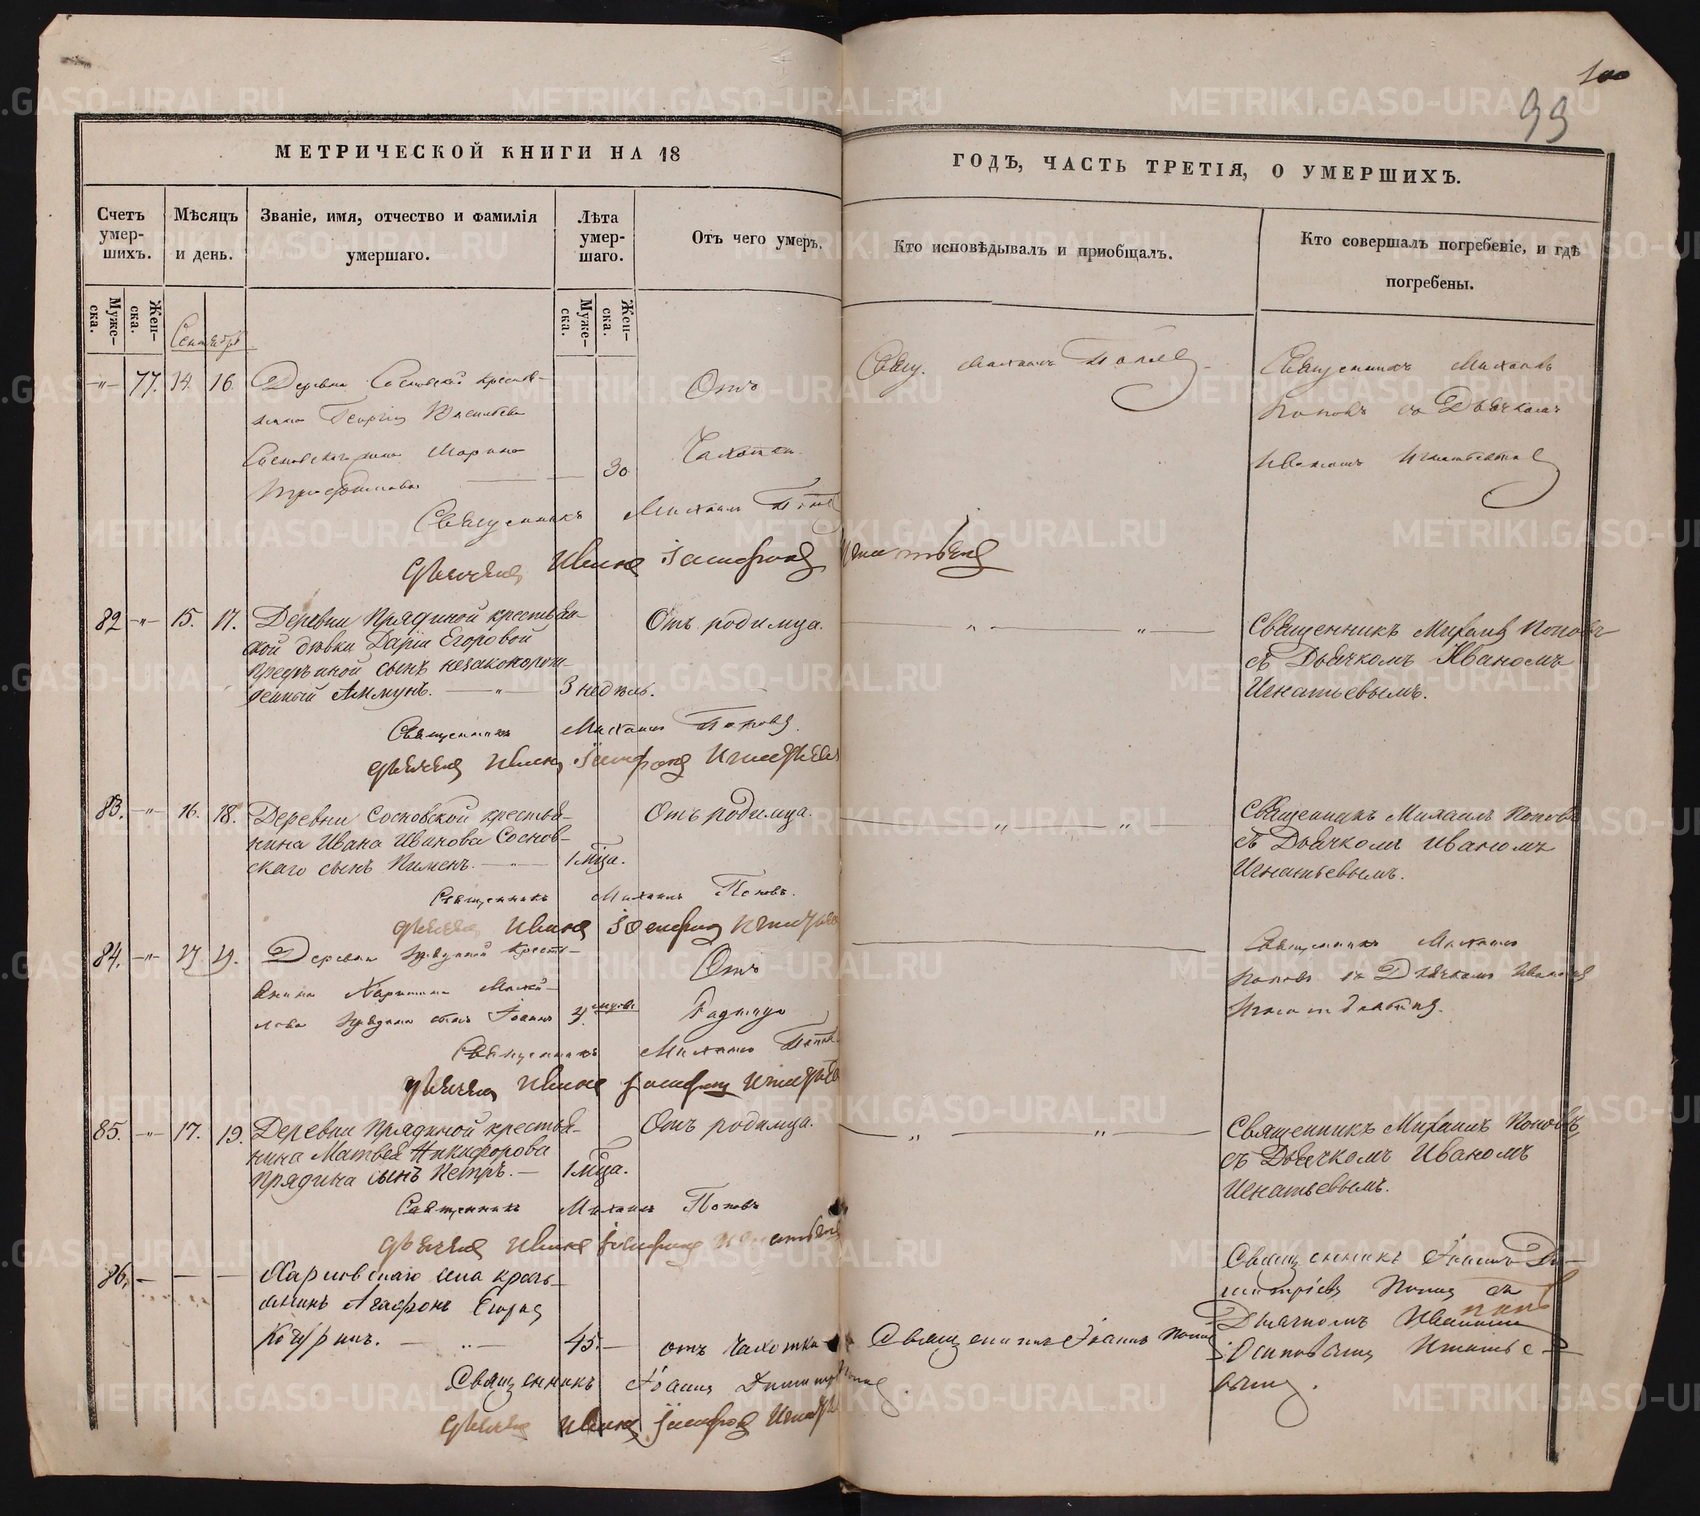 100
99
МЕТРИЧЕСКОЙ КНИГИ НА 18
ГОДЪ, ЧАСТЬ ТРЕТІЯ, О УМЕРШИХЪ.
Счетъ умер-шихъ.
Мѣсяцъ и день.
Званіе, имя, отчество и фамилія умершаго.
Лѣта умер-шаго.
Отъ чего умеръ.
Кто исповѣдывалъ и пріобщалъ.
Кто совершалъ погребеніе, и гдѣ погребены.
Муже-ска.
Жен-ска.
Муже-ска.
Жен-ска.
77. 14. 16
Деревни Сосновской крестья-
нина Георгія Васильева
Сосновскаго жена Марина
30
Отъ
Чахотки
Свящ. Михаилъ Поповъ
Священникъ Михаилъ
Поповъ съ Дьячкомъ
Иваномъ Игнатьевымъ
Священникъ Михаилъ Поповъ
Дьячекъ Иванъ Іосифовъ Игнатьевъ
82 -"- 15. 17.
Деревни Прядиной крестьян-
ской дѣвки Даріи Егоровой
сынъ незаконорож-
денный
3 недѣль.
Отъ родимца.
Священникъ Михаилъ Поповъ
съ Дьячкомъ Иваномъ
Игнатьевымъ.
Священникъ Михаилъ Поповъ
Дьячекъ Иванъ Іосифовъ Игнатьевъ
83. -"- 16. 18.
Деревни Сосновской крестья-
нина Ивана Иванова Соснов-
скаго сынъ Пименъ.
1 мца.
Отъ родимца.
Священникъ Михаилъ Поповъ
съ Дьячкомъ Иваномъ
Игнатьевымъ.
Священникъ Михаилъ Поповъ.
Дьячекъ Иванъ Іосифовъ Игнатьевъ
84. -"- 19.
Деревни Прядиной кресть-
янина Харитона
Прядина сынъ Іоаннъ
Отъ
Родимца
Священникъ Михаилъ
Поповъ съ Дьячкомъ Иваномъ
Священникъ Михаилъ Поповъ
Дьячекъ Иванъ Іосифовъ Игнатьевъ
85. -"- 17. 19.
Деревни Прядиной крестья-
нина Матвея Никифорова
Прядина сынъ Петръ.
1 мца.
Отъ родимца.
Священникъ Михаилъ Поповъ
съ Дьячкомъ Иваномъ
Игнатьевымъ.
Священникъ Михаилъ Поповъ
Дьячекъ Иванъ Іосифовъ Игнатьевъ
86.
села кресть-
янинъ Агафонъ Егоровъ
45.
отъ чахотки
Священникъ Іоаннъ Поповъ
Священникъ Іоаннъ Ди-
митріевъ Поповъ съ
Дьячкомъ Иваномъ
Осиповымъ Игнатье-
вымъ.
Священникъ Іоаннъ Димитр Поповъ
Дьячекъ Иванъ Іосифовъ Игнатьевъ
METRIKI.GASO-URAL.RU